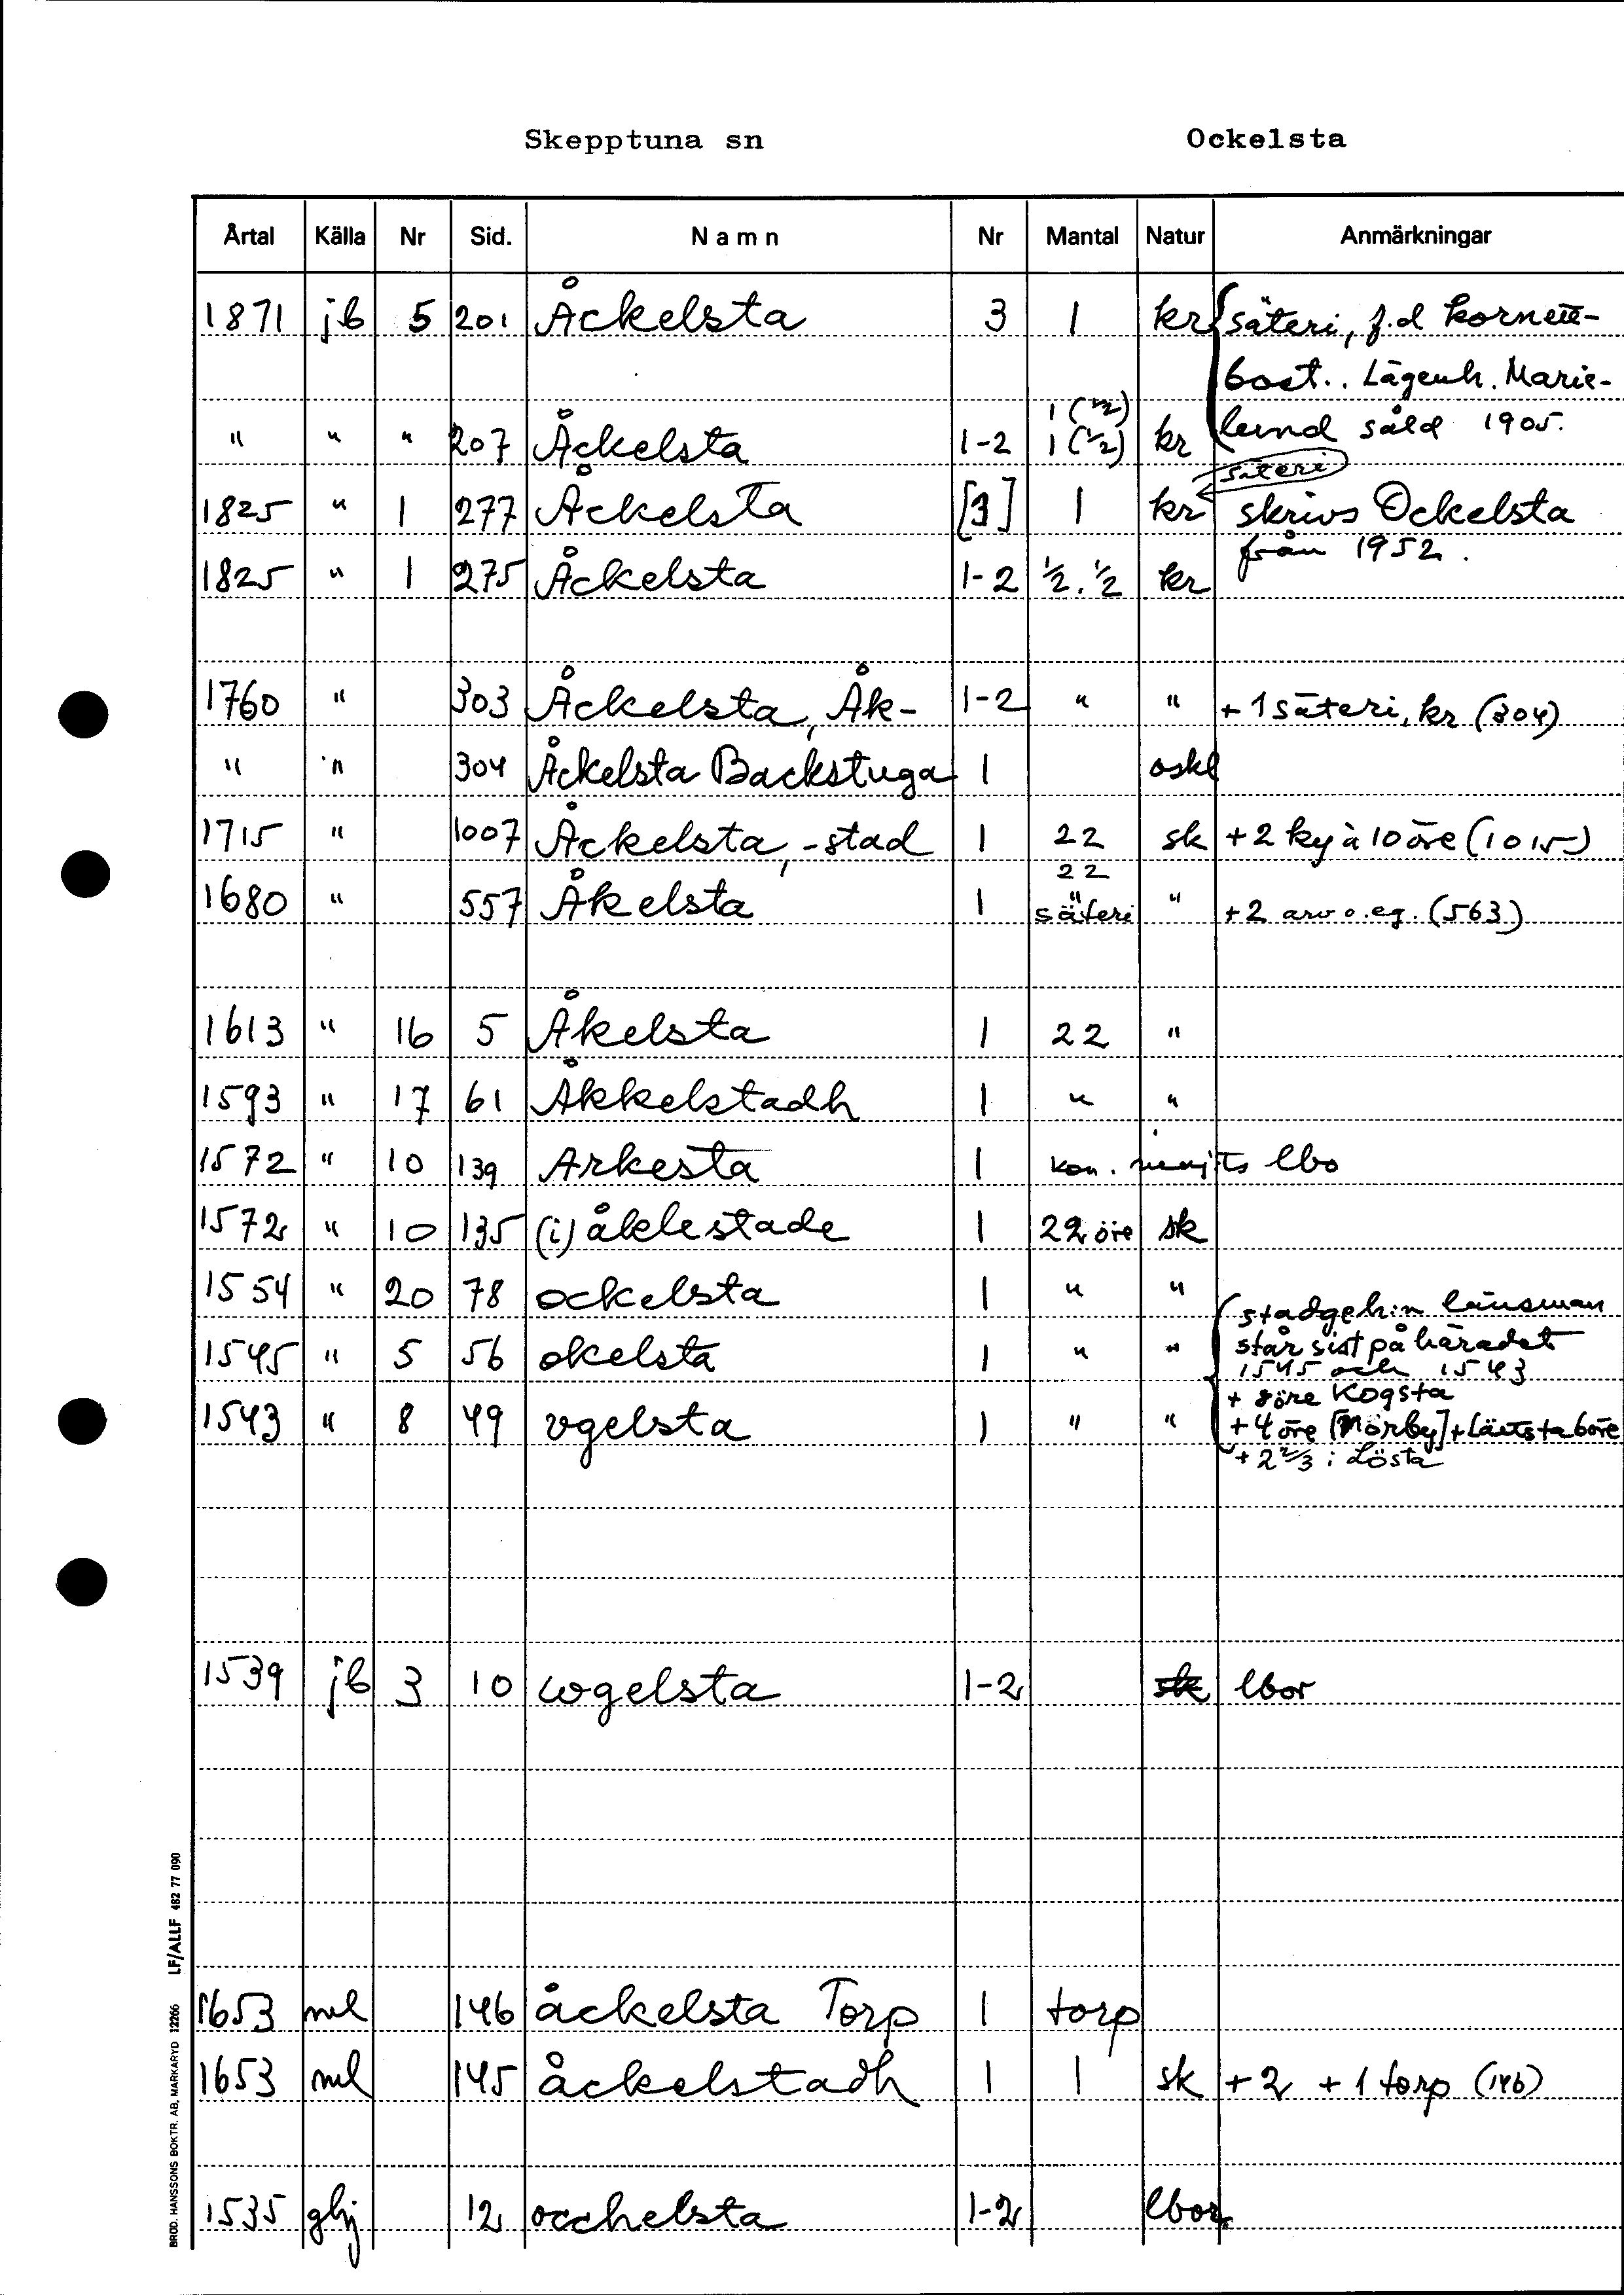 Skepptuna sn Ockelsta
Årtal Källa Nr Sid. Namn Nr Mantal Natur Anmärkningar
1871 jb 5 201 Åckelsta 3 1 kr säteri, f.d kornett-
bost.. Lägenh. Marie-
1 (1/2)
" " " 207 Åckelsta 1-2 1 (1/2) kr lund såld 1905.
säteri
1825 " 1 277 Åckelsta [3] 1 kr skrivs Ockelsta
från 1952.
1825 " 1 275 Åckelsta 1-2 1/2. 1/2 kr
1760 " 303 Åckelsta, Åk- 1-2 " " + 1 säteri, kr (304)
" " 304 Åckelsta Backstuga 1 oskl
1715 " 1007 Åckelsta, -stad 1 22 sk + 2 ky à 10 öre (1015)
22
1680 " 557 Åkelsta 1 säteri " +2 arv o. eg. (563)
1613 " 16 5 Åkelsta 1 22 "
1593 " 17 61 Åkkelstadh 1 " "
1572 " 10 139 Arkesta 1 kon. lbo
1572 " 10 135 (i) åklestade 1 22 öre sk
1554 " 20 78 ockelsta 1 " "
stadgeh:n länsman
1545 " 5 56 okelsta 1 " " står sist på häradet
1545 och 1543
+ 8öre Kogsta
1543 " 8 49 vgelsta 1 " " + 4 öre [Mörby] + 6öre
+ 2 2/3 i Lösta
1539 jb 3 10 wgelsta 1-2 sk lbor
1653 ml 146 åckelsta Torp 1 torp
1653 ml 145 åckelstadh 1 1 sk + 2 + 1 torp (146)
1535 ghj 12 occhelsta 1-2 lbor
BROD. HANSSONS BOKTR. AB, MARKARYD 12266 LF/ALLF 482 77 090